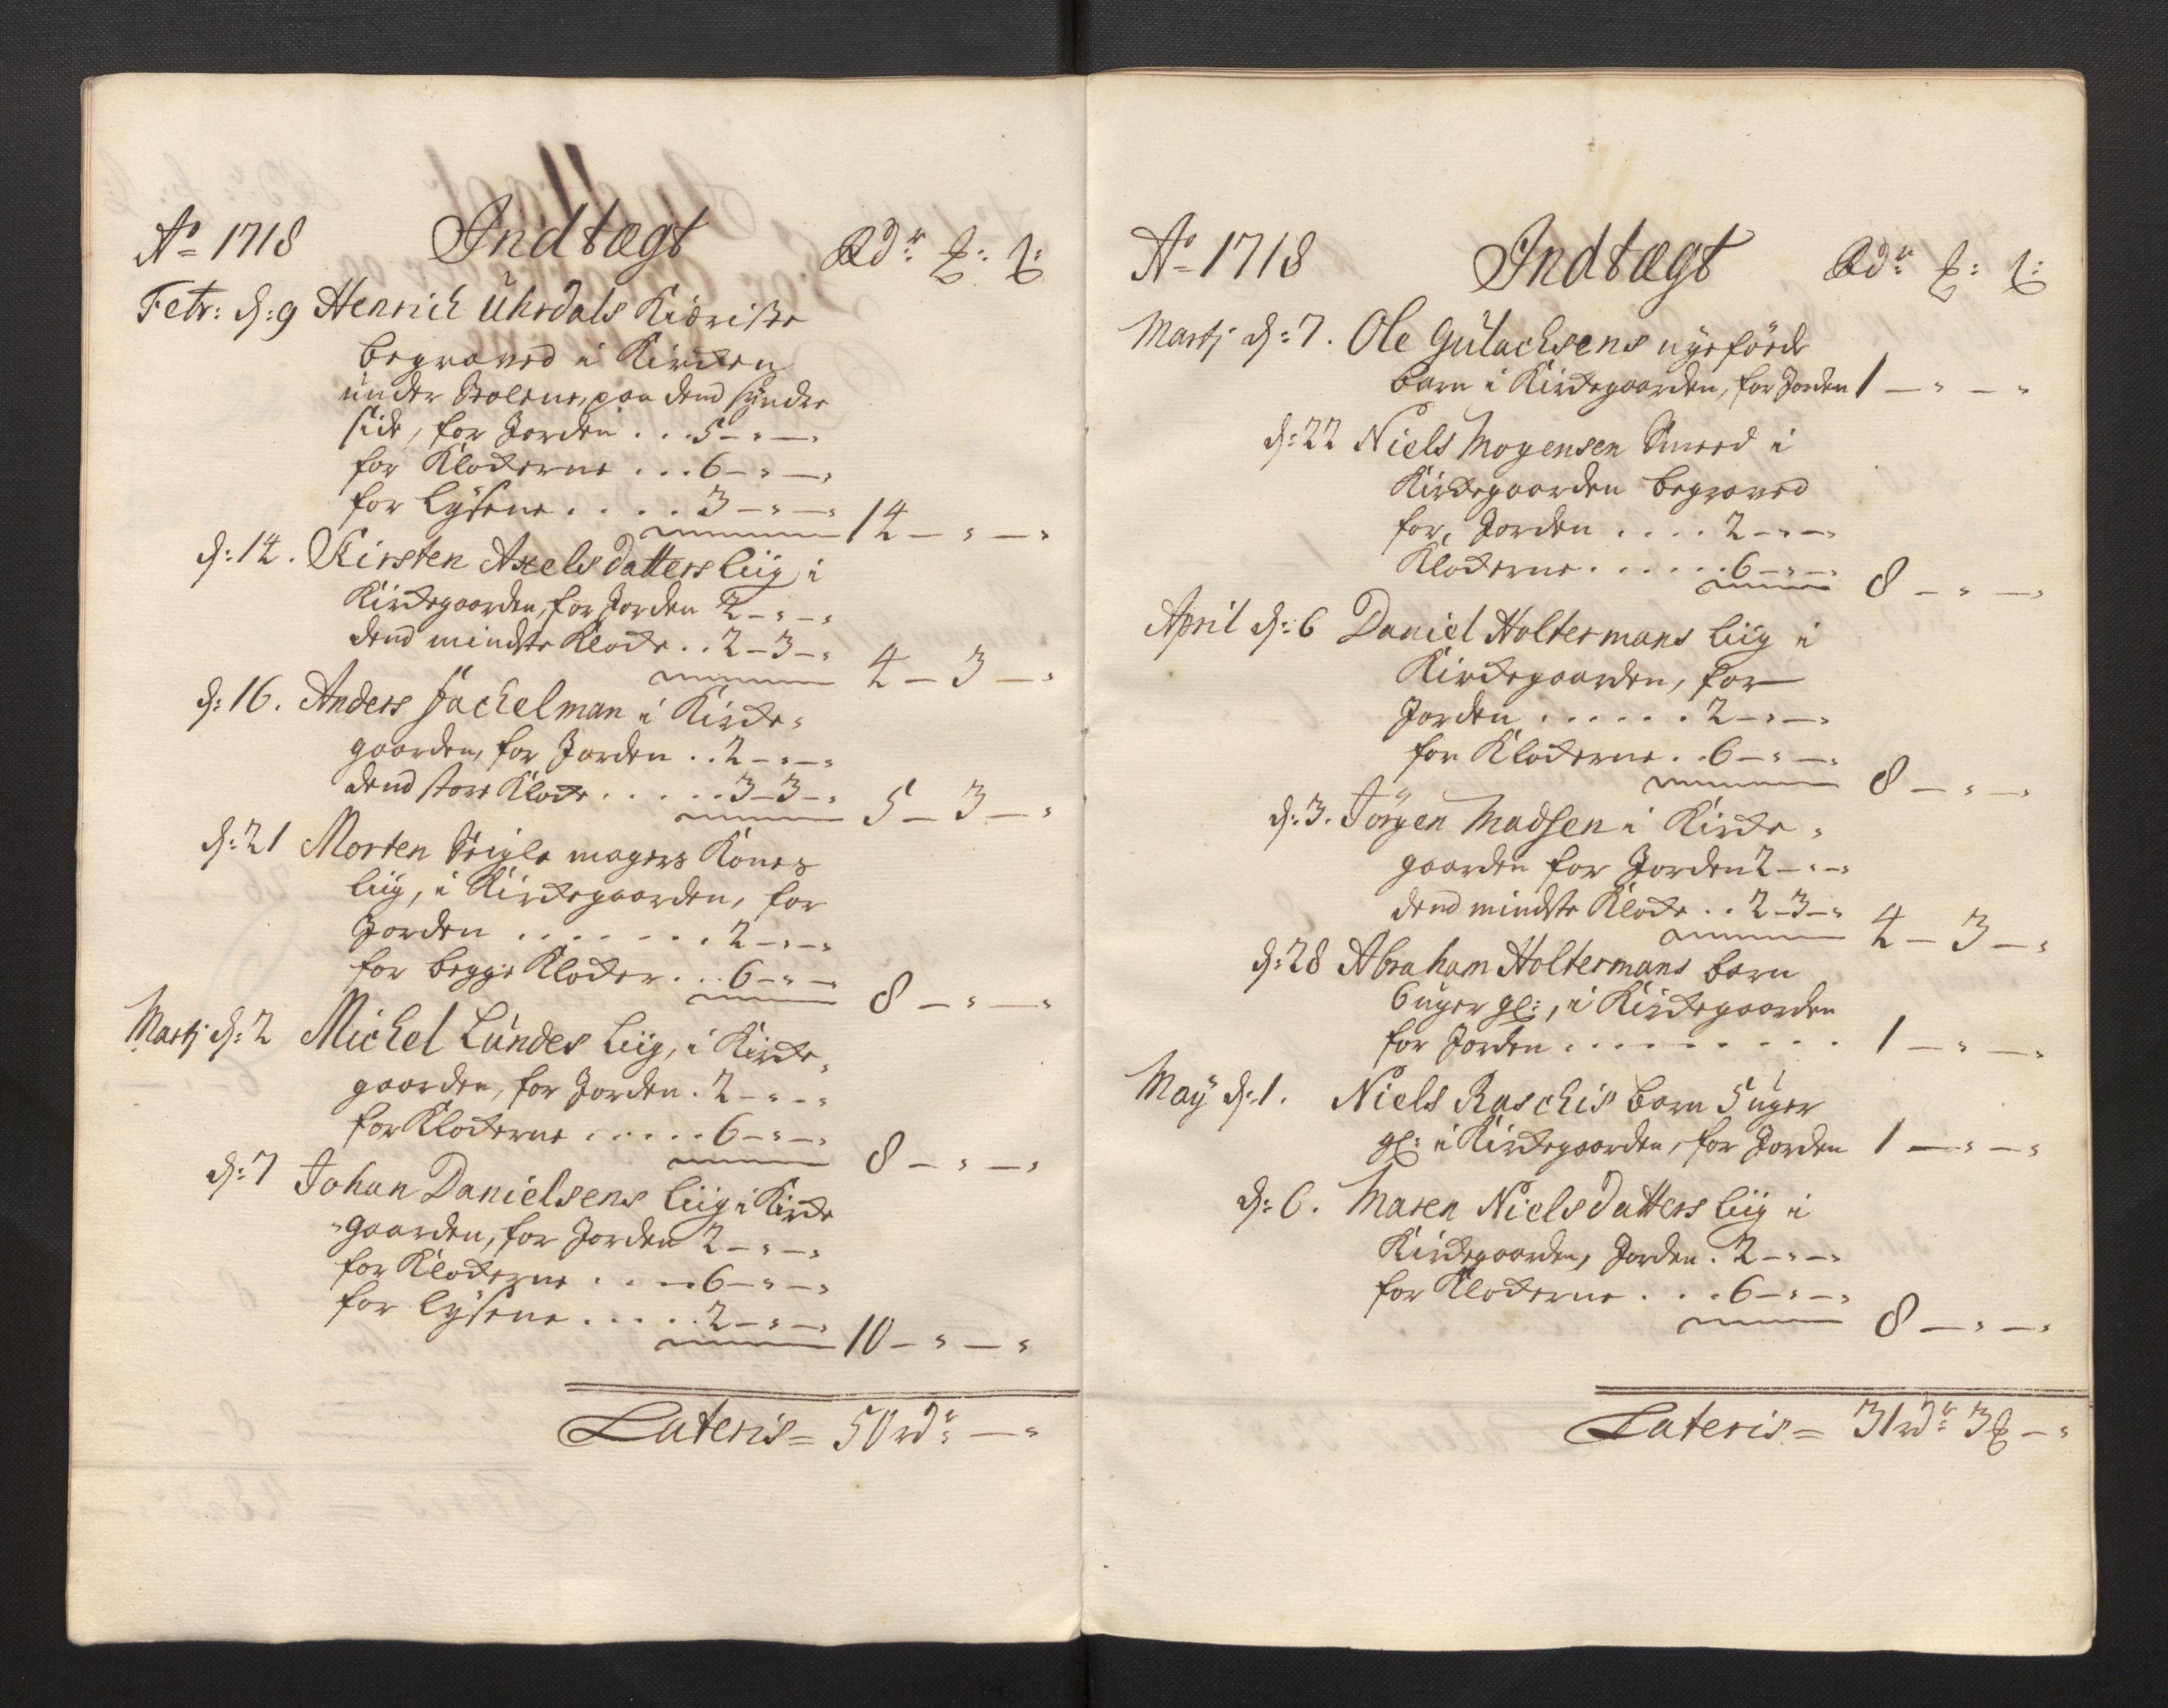 Ao 1718 Indtægt Rdr: ß: ß:
Febr: d: 9 Henrich Uhrdals Kiöriste
begraved i Kircken
under Stolene, paa dend syndre
side, for Jorden ... 5 - " - "
for Klockerne ... 6 - " - "
for Lysene ..... 3 - " - " 14 - " - "
d: 14. Kirsten Axelsdatters liig i
Kirckegaarden, for Jorden 2 - " - "
dend mindste Klocke .. 2 - 3 - " 4 - 3 - "
d: 16. Anders Jackelman i Kircke-
gaarden, for Jorden .. 2 - " - "
dend store Klocke ..... 3 - 3 - " 5 - 3 - "
d: 21 Morten Teigle magers Kones
liig, i Kirckegaarden, for
Jorden ........ 2 - " - "
for begge Klocker ... 6 - " - " 8 - " - "
Martj d: 2 Michel Lundes liig, i Kircke-
gaarden, for Jorden . 2 - " - "
for Klockerne ..... 6 - " - " 8 - " - "
d: 7 Johan Danielsens liig i Kircke
-gaarden, for Jorden 2 - " - "
for Klockerne .... 6 - " - "
for Lysene ..... 2 - " - " 10 - " - "
Lateris = 50 rdr: - "
Ao 1718 Indtægt Rdr: ß: ß:
Martj d: 7. Ole Gulachsens nyeföede
barn i Kirckegaarden, for Jorden 1 - " - "
d: 22 Niels Mogensen Smed i
Kirckegaarden begraved
for Jorden .... 2 - " - "
Klockerne ...... 6 - " - " 8 - " - "
April d: 6 Daniel Holtermans liig i
Kirckegaarden, for
Jorden ...... 2 - " - "
for Klockerne .. 6 - " - " 8 - " - "
d: 3. Jörgen Madsen i Kircke-
gaarden for Jorden 2 - " - "
dend mindste Klocke .. 2 - 3 - " 4 - 3 - "
d: 28 Abraham Holtermans barn
6 uger gl:, i Kirckegaarden
for Jorden ......... 1 - " - "
May d: 1. Niels Raschis barn 5 uger
gl: i Kirckegaarden, for Jorden 1 - " - "
d: 6. Maren Nielsdatters liig i
Kirckegaarden, Jorden . 2 - " - "
for Klockerne ... 6 - " - " 8 - " - "
Lateris = 31 rdr: 3 ß - "